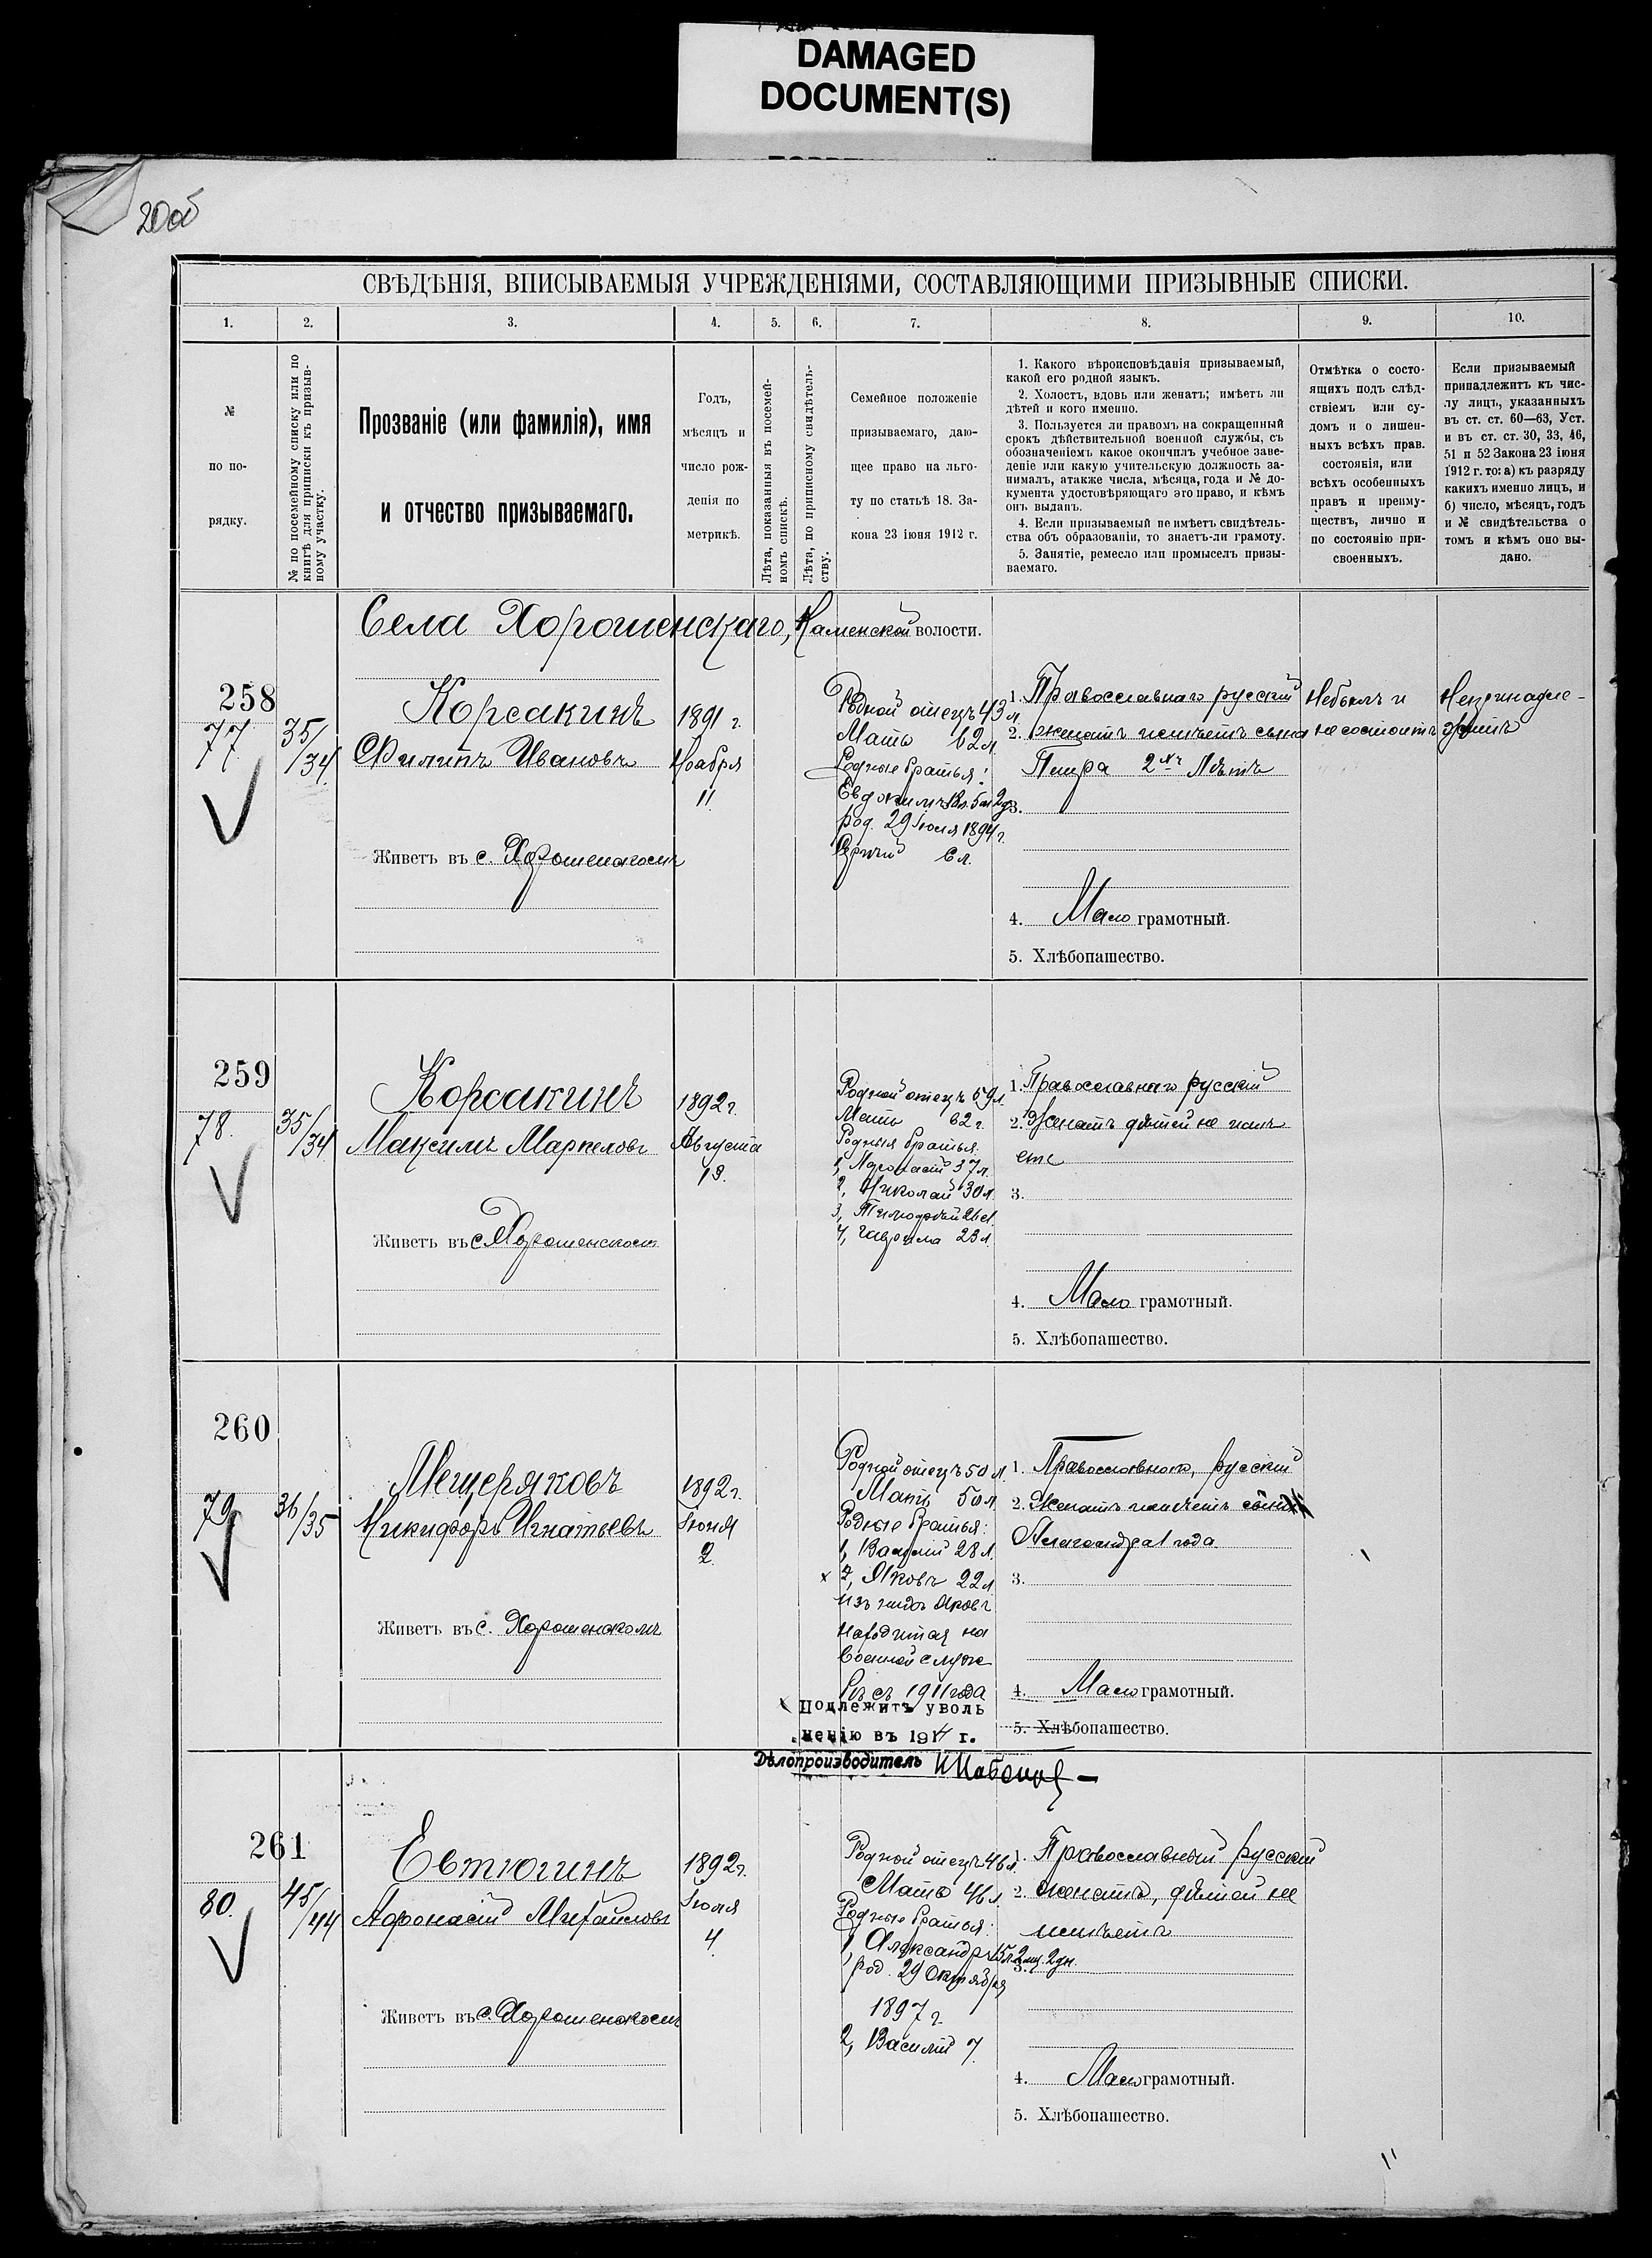 DAMAGED
DOCUMENT(S)
20об
СВѢДѢНІЯ, ВПИСЫВАЕМЫЯ УЧРЕЖДЕНІЯМИ, СОСТАВЛЯЮЩИМИ ПРИЗЫВНЫЕ СПИСКИ.
1. 2. 3. 4. 5. 6. 7. 8. 9. 10.
№
по по-
рядку.
№ по посемейному списку или по
книгѣ для приписки къ призыв-
ному участку.
Прозваніе (или фамилія), имя
и отчество призываемаго.
Годъ,
мѣсяцъ и
число рож-
денія по
метрикѣ.
Лѣта, показанныя въ посемей-
номъ спискѣ.
Лѣта, по приписному свидѣтель-
ству.
Семейное положеніе
призываемаго, даю-
щее право на льго-
ту по статьѣ 18. За-
кона 23 іюня 1912 г.
1. Какого вѣроисповѣданія призываемый,
какой его родной языкъ.
2. Холостъ, вдовъ или женатъ; имѣетъ ли
дѣтей и кого именно.
3. Пользуется ли правомъ на сокращенный
срокъ дѣйствительной военной службы, съ
обозначеніемъ какое окончилъ учебное заве-
деніе или какую учительскую должность за-
нималъ, а также числа, мѣсяца, года и № до-
кумента удостовѣряющаго это право, и кѣмъ
онъ выданъ.
4. Если призываемый не имѣетъ свидѣтель-
ства объ образованіи, то знаетъ-ли грамоту.
5. Занятіе, ремесло или промыселъ призы-
ваемаго.
Отмѣтка о состо-
ящихъ подъ слѣд-
ствіемъ или су-
домъ и о лишен-
ныхъ всѣхъ прав.
состоянія, или
всѣхъ особенныхъ
правъ и преиму-
ществъ, лично и
по состоянію при-
своенныхъ.
Если призываемый
принадлежитъ къ чис-
лу лицъ, указанныхъ
въ ст. ст. 60—63, Уст.
и въ ст. ст. 30, 33, 46,
51 и 52 Закона 23 іюня
1912 г. то: а) къ разряду
какихъ именно лицъ, и
б) число, мѣсяцъ, годъ
и № свидѣтельства о
томъ и кѣмъ оно вы-
дано.
Села Хорошенскаго, Каменской волости.
258
77
35/34
Корсакинъ
Филипъ Ивановъ
Живетъ въ с. Хорошенскомъ
1891 г.
Ноября
11
Родной отецъ 43 л.
Мать 62 л.
Родные братья:
род. 29 Іюля 1894 г.
6 л.
1. Православнаго русскій
2. женатъ имѣетъ сына
Петра 2хъ Лѣтъ
3.
4. Мало грамотный.
5. Хлѣбопашество.
Небылъ и
не состоитъ
Непринадле-
житъ
259
78
35/34
Корсакинъ
Максимъ Маркеловъ
Живетъ въ с. Хорошенскомъ
1892 г.
Августа
13.
Родной отецъ 59 л.
Мать 62 г.
Родныя братья
1, 37 л.
2, Николай 30 л.
3, Тимофѣй 26 л.
4, Гаврила 23 л.
1. Православнаго русскій
2. Женатъ дѣтей не имѣ
етъ
3.
4. Мало грамотный.
5. Хлѣбопашество.
260
79
36/35
Мещеряковъ
Никифоръ Игнатьевъ
Живетъ въ с. Хорошенскомъ
1892 г.
Іюня
2
Родной отецъ 50 л.
Мать 50 л.
Родные братья:
1, Василій 28 л.
х 2, Яковъ 22 л.
изъ нихъ Яковъ
находится на
военной служ
бѣ съ 1911 года
Подлежитъ уволь
ненію въ 1914 г.
Дѣлопроизводитель
1. Православнаго, русскій
2. Женатъ имѣетъ сына
Александра 1 года.
3.
4. Мало грамотный.
5. Хлѣбопашество.
261
80.
45/44
Евтюгинъ
Афонасій Михайловъ
Живетъ въ с. Хорошенскомъ
1892 г.
Іюля
4
Родной отецъ 46 л.
Мать 46 л.
Родные братья:
1, Александръ 15 л. 2 мц. 2 дн.
род. 29 Октября
1897 г.
2, Василій 7.
1. Православный русскій
2. женатъ, дѣтей не
имѣетъ
3.
4. Мало грамотный.
5. Хлѣбопашество.